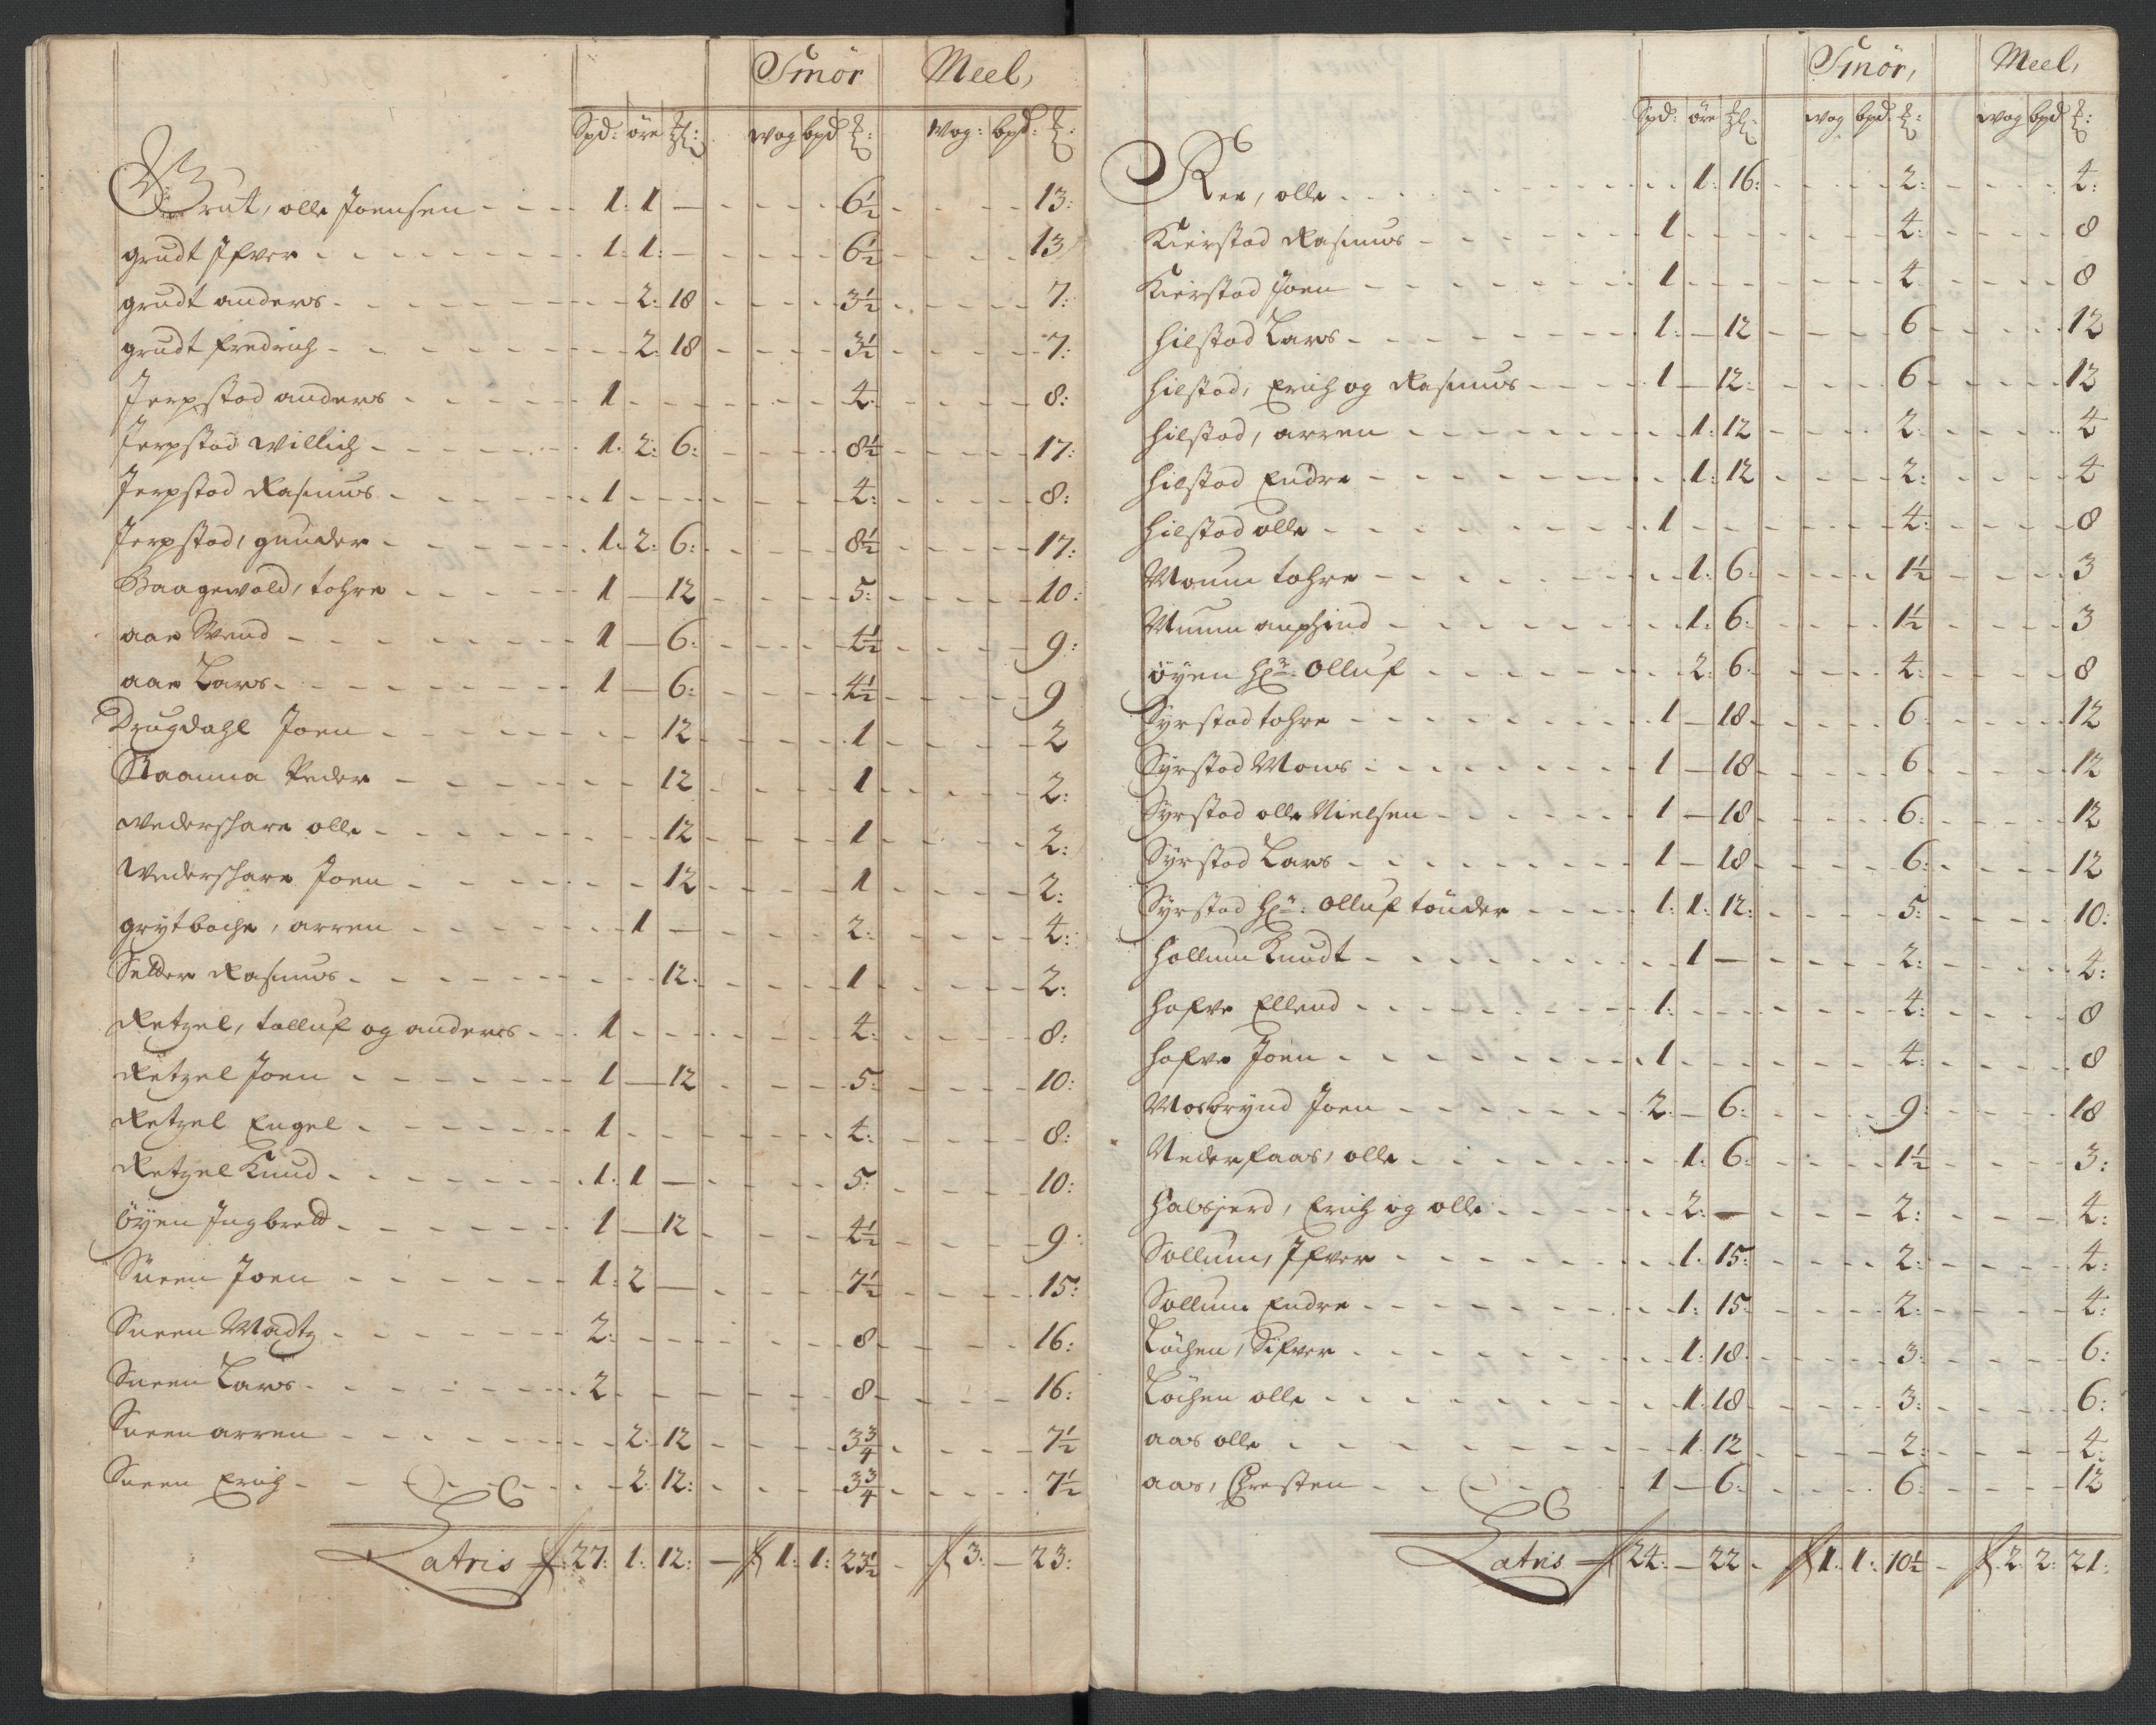 Smör Meel,
Spd: öre ℔: wog bpd ℔: Wog: bpd: ℔:
Grut, olle Joensen 1: 1 — 6½ 13:
grudt Ifver 1: 1: — 6½ 13
grudt anders 2: 18 3½ 7:
grudt fredrich 2: 18 3½ 7:
Jerpstad anders 1 4: 8:
Jerpstad Willich 1: 2: 6: 8½ 17:
Jerpstad Rasmus 1 4: 8:
Jerpstad, gunder 1: 2: 6: 8½ 17:
Haagewold, tohre 1 — 12 5: 10:
aae Svend 1 — 6: 4½ 9:
aae Lars 1 — 6: 4½ 9
Drugdahl Joen 12 1 2
Raanna Peder 12 1 2:
wederschare olle 12 1 2:
Wederschare Joen 12 1 2:
grytbache, arren 1 — 2: 4:
Selder Rasmus 12 1 2:
Retzel, talluf og anders 1 4: 8:
Retzel Joen 1 — 12 5: 10:
Retzel Engel 1 4: 8:
Retzel Knud 1: 1 — 5: 10:
öyen Ingbreld 1 — 12 4½ 9:
Süeen Joen 1: 2 — 7½ 15:
Sueen Madtz 2: 8 16:
Sueen Lars 2 8 16:
Sueen arren 2: 12 3¾ 7½
Sueen Erich 2: 12: 3¾ 7½
Latris 27: 1: 12: — 1: 1: 23½ 3: — 23:
Smör, Meel,
Spd: öre ℔: wog bpd: ℔: wog bpd ℔:
Ree, olle 1: 16: 2: 4:
Kierstad Rasmus 1 4: 8
Kierstad Joen 1 4 8
hilstad Lars 1: — 12 6 12
hilstad, Erich og Rasmus 1 — 12: 6 12
hilstad, arren 1: 12 2 4
hilstad Endre 1: 12 2: 4
hilstad olle 1 4: 8
Moum tohre 1: 6: 1½ 3
Muum anphind 1: 6: 1½ 3
öyen hr: Olluf 2: 6: 4: 8
Syrstad tohre 1 — 18 6: 12
Syrstad Mons 1 — 18 6 12
Syrstad olle Nielsen 1 — 18 6: 12
Syrstad Lars 1 — 18 6: 12
Syrstad hr: Olluf tönder 1: 1: 12: 5: 10:
hollum Knudt 1 — 2: 4:
hafve Ellend 1: 4: 8
hafve Joen 1 4: 8
Mosbrynd Joen 2 — 6: 9: 18
Nederfaas, olle 1: 6: 1½ 3:
halsjerd, Erich og olle 2: — 2: 4:
Sollum, Ifver 1: 15: 2: 4:
Sollum Endre 1: 15: 2: 4:
Löchen, Sifver 1: 18 3: 6:
Löchen olle 1: 18 3: 6:
aas olle 1: 12 2: 4:
aas, Chresten 1 — 6: 6: 12
Latris 24: — 22 1: 1: 10½ 2: 2: 21: